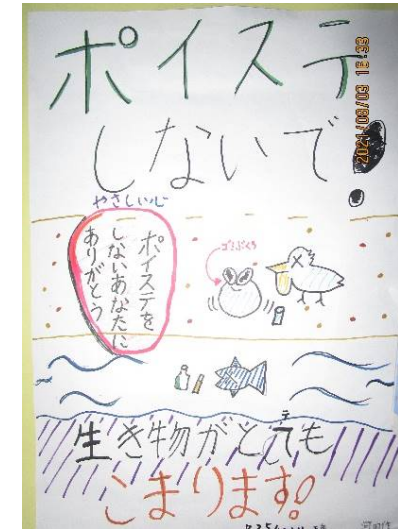 ポイステ
しないで!
2021/08/09
やさしい心
ポイステを
しないあなたに
ありがとう
ゴミぶくろ
生き物がとても
こまります!